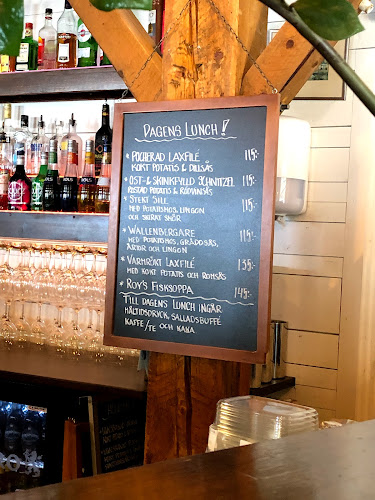 DAGENS LUNCH!
* POCHERAD LAXFILÉ 115:-
KOKT POTATIS & DILLSÅS
* OST- & SKINKFYLLD SCHNITZEL 115:-
RÖSTAD POTATIS & RÖDVINSÅS
* STEKT SILL 115:-
MED POTATISMOS, LINGON
OCH SKIRAT SMÖR
* WALLENBERGARE 115:-
MED POTATISMOS, GRÄDDSÅS,
ÄRTOR OCH LINGON
* VARMRÖKT LAXFILÉ 135:-
MED KOKT POTATIS OCH ROMSÅS
* ROY'S FISKSOPPA 145:-
TILL DAGENS LUNCH INGÅR
MÅLTIDSDRICK, SALLADSBUFFÉ
KAFFE/TE OCH KAKA.